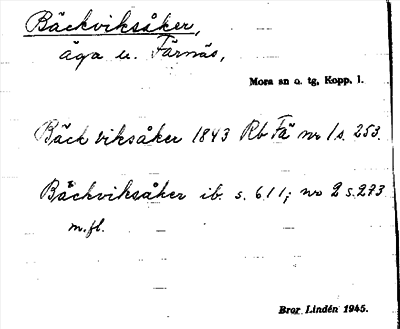 Bäckviksåker,
äga u. Färnäs,
Mora sn o. tg, Kopp. l.
Bäckviksåker 1843 Rb Fä nr 1 s. 253.
Bäckviksåker ib. s. 611; no 2 s. 273
m.fl.
Bror Lindén 1945.